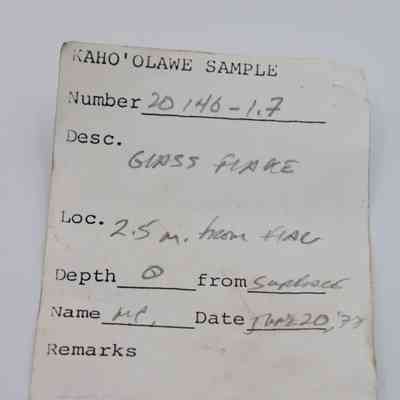 KAHO'OLAWE SAMPLE
Number 20 146-1.7
Desc.
GLASS FLAKE
Loc. 2.5 m. from FLAG
Depth 0 from surface
Name MP. Date June 20,
Remarks